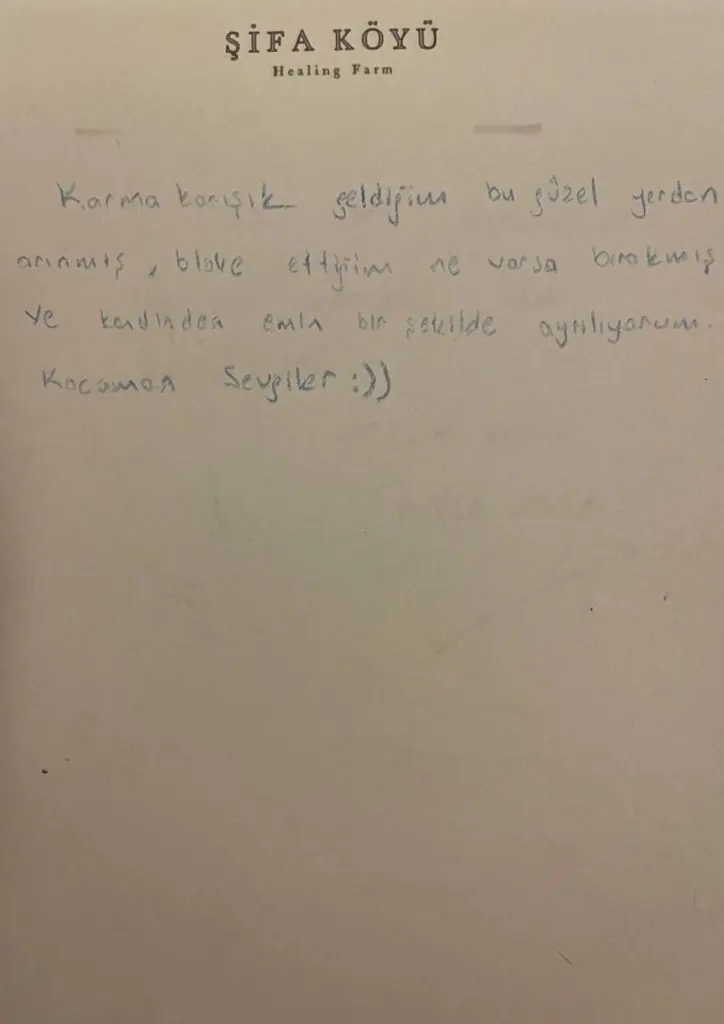 ŞİFA KÖYÜ
Healing Farm
Karma karışık geldiğim bu güzel yerden
arınmış, bloke ettiğim ne varsa bırakmış
ve kendinden emin bir şekilde ayrılıyorum.
Kocaman Sevgiler :))